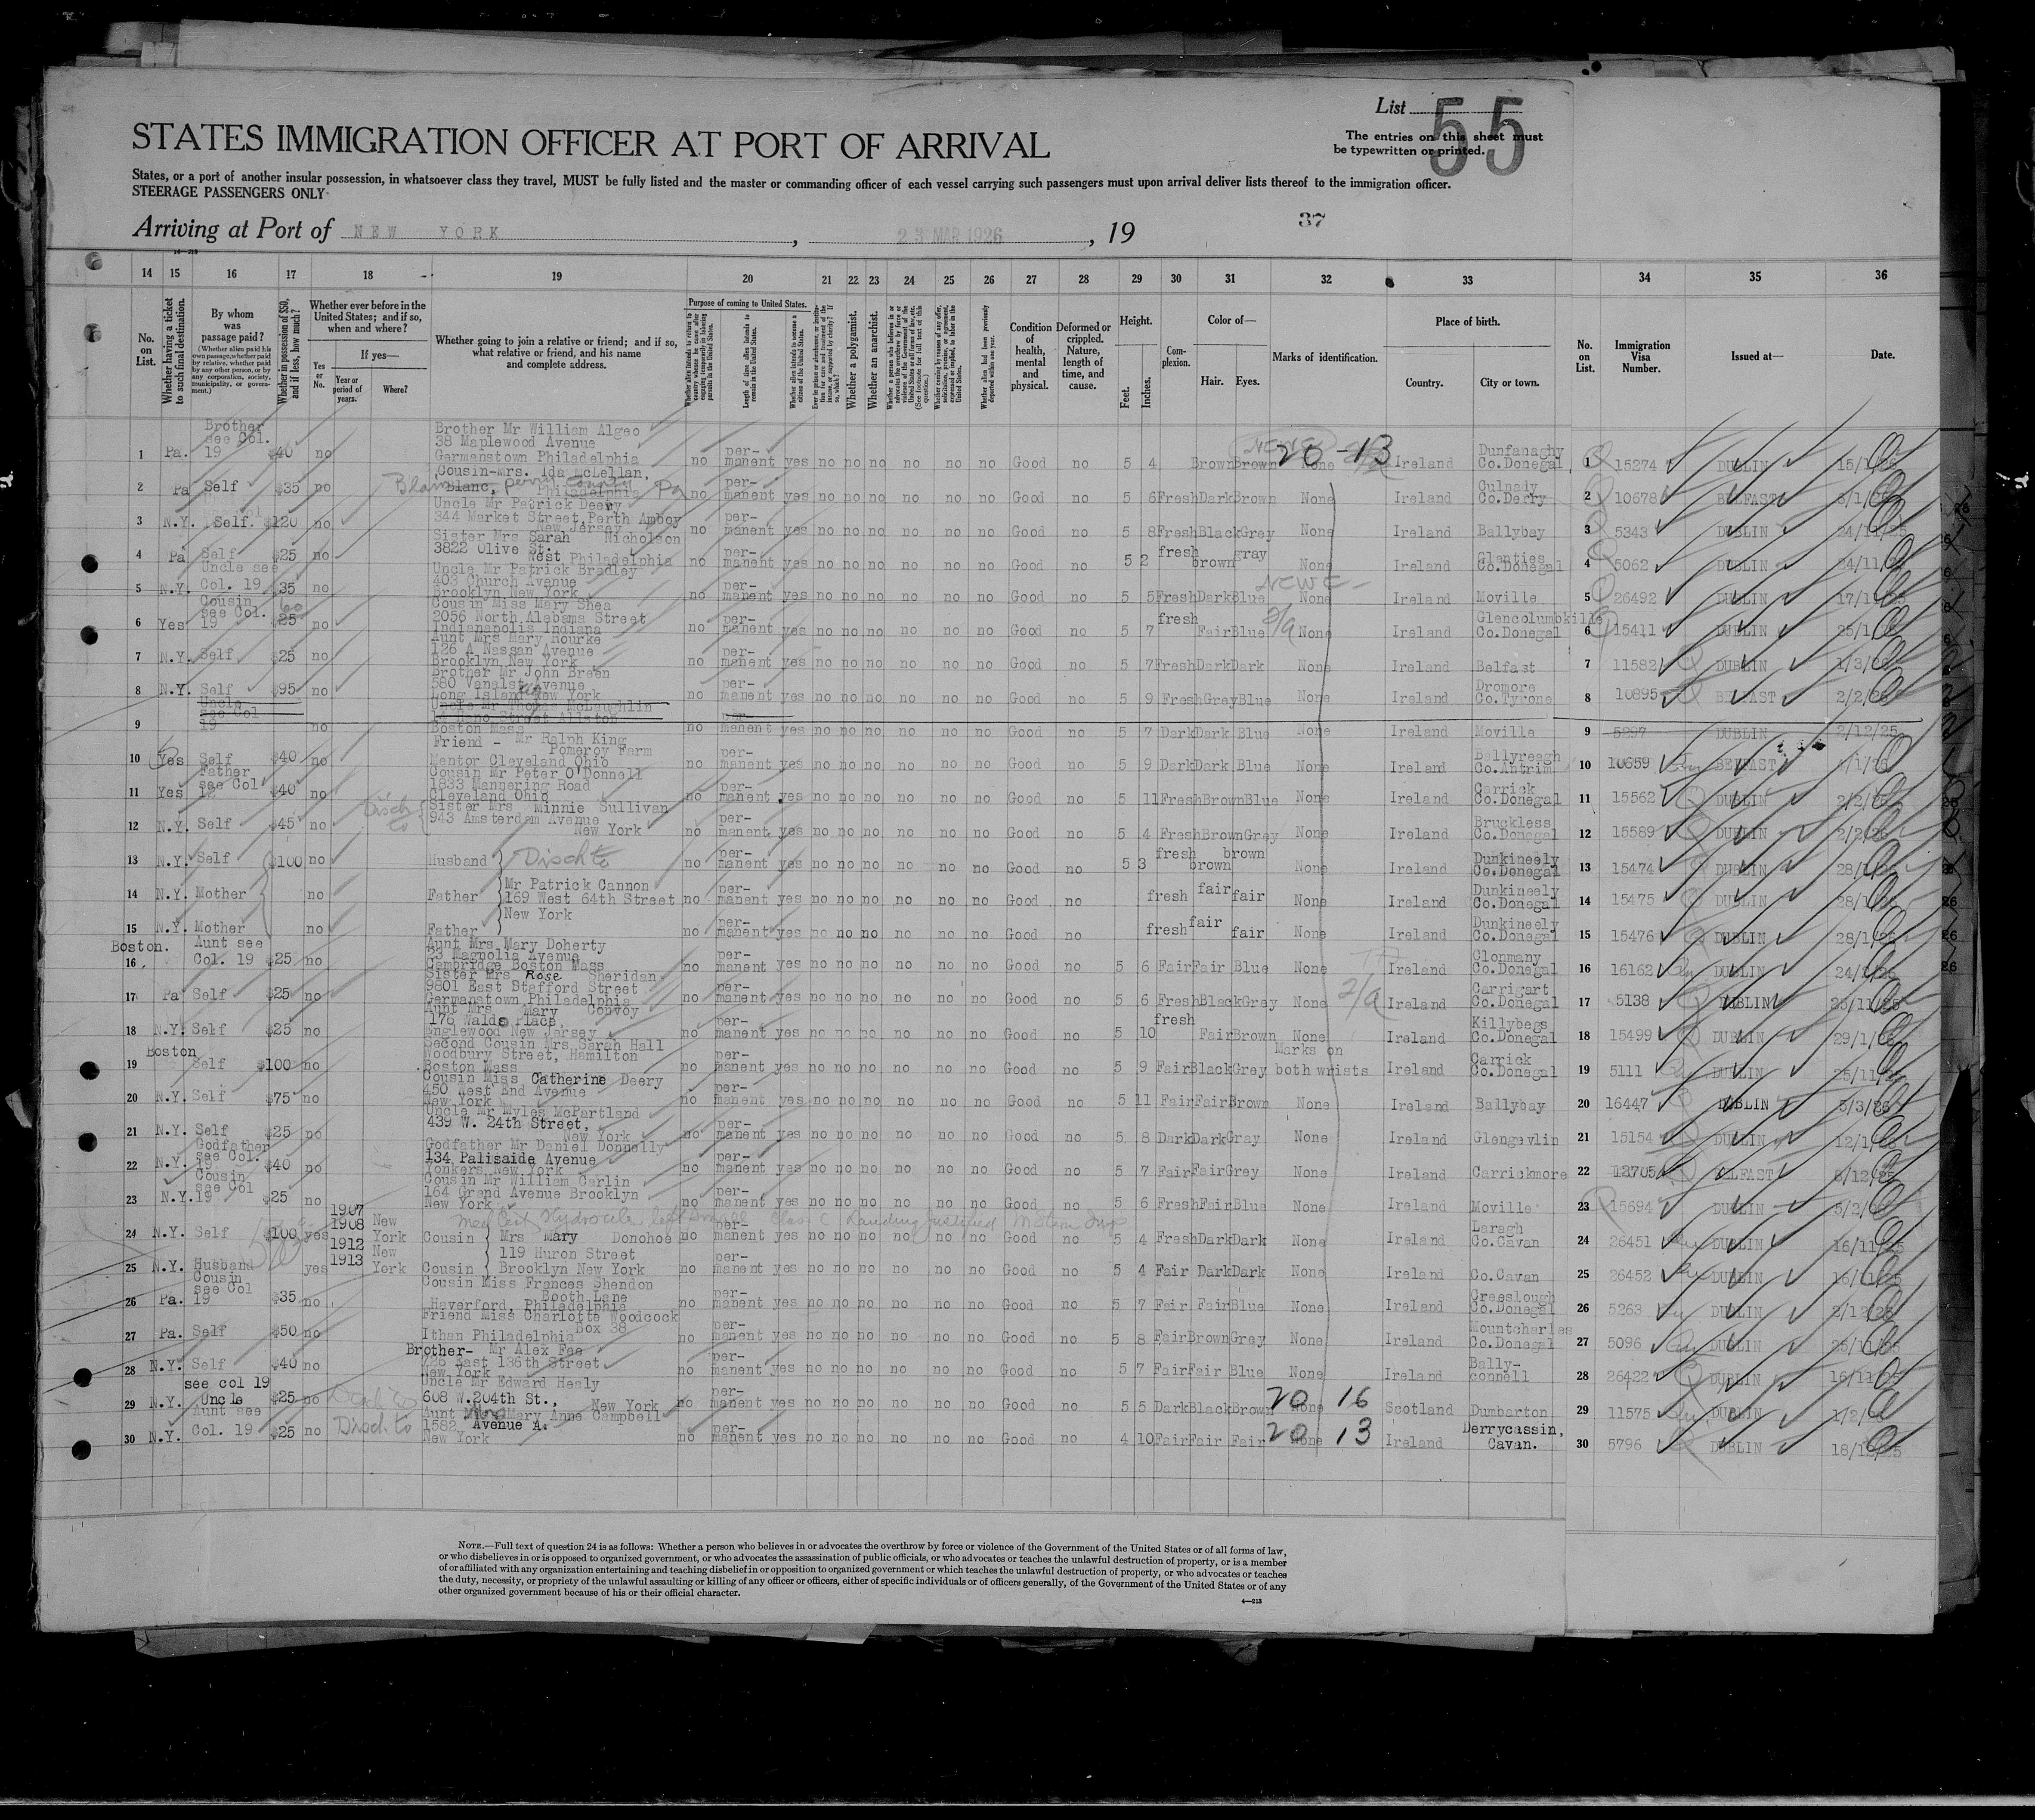 List 55
The entries on this sheet must
be typewritten or printed.
STATES IMMIGRATION OFFICER AT PORT OF ARRIVAL
States, or a port of another insular possession, in whatsoever class they travel, MUST be fully listed and the master or commanding officer of each vessel carrying such passengers must upon arrival deliver lists thereof to the immigration officer.
STEERAGE PASSENGERS ONLY
37
Arriving at Port of NEW YORK, 23 MAR 1926, 19
14 15 16 17 18 19 20 21 22 23 24 25 26 27 28 29 30 31 32 33 34 35 36
No. on List.
Whether having a ticket to such final destination.
By whom was passage paid?
(Whether alien paid his own passage, whether paid by relative, whether paid by any other person, or by any corporation, society, municipality, or government.)
Whether in possession of $50, and if less, how much?
Whether ever before in the United States; and if so, when and where?
Yes or No.
If yes—
Year or period of years.
Where?
Whether going to join a relative or friend; and if so, what relative or friend, and his name and complete address.
Purpose of coming to United States.
Length of time alien intends to remain in the United States.
Whether a polygamist.
Whether an anarchist.
Condition of health, mental and physical.
Deformed or crippled. Nature, length of time, and cause.
Height.
Feet. Inches.
Complexion.
Color of—
Hair. Eyes.
Marks of identification.
Place of birth.
Country. City or town.
No. on List.
Immigration Visa Number.
Issued at—
Date.
1 Pa. Brother see Col. 19 $40 no Brother Mr William Algeo 38 Maplewood Avenue Germantown Philadelphia no permanent yes no no no no no no Good no 5 4 Brown Brown None 20-13 Ireland Dunfanaghy Co.Donegal 1 15274 DUBLIN
2 Pa Self $35 no Cousin-Mrs. Ida McLellan, Blanc, Perry County Philadelphia Pa no permanent yes no no no no no no Good no 5 6 Fresh Dark Brown None Ireland Culnady Co.Derry 2 10678 BELFAST
3 N.Y. Self. $120 no Uncle Mr Patrick Deery 344 Market Street, Perth Amboy New Jersey no permanent yes no no no no no no Good no 5 8 Fresh Black Grey None Ireland Ballybay 3 5343 DUBLIN 24/11/25
4 Pa Self $25 no Sister Mrs Sarah Nicholson 3822 Olive St. West Philadelphia no permanent yes no no no no no no Good no 5 2 fresh brown gray None Ireland Glenties Co.Donegal 4 5062 DUBLIN
5 N.Y. Uncle see Col. 19 $35 no Uncle Mr Patrick Bradley 403 Church Avenue Brooklyn New York no permanent yes no no no no no no Good no 5 5 Fresh Dark Blue None Ireland Moville 5 26492 DUBLIN
6 Yes Cousin see Col. 19 $25 no Cousin Miss Mary Shea 2056 North Alabama Street Indianapolis Indiana no permanent yes no no no no no no Good no 5 7 fresh Fair Blue None Ireland Glencolumbkille Co.Donegal 6 15411 DUBLIN
7 N.Y. Self $25 no Aunt Mrs Mary Rourke 126 A Nassan Avenue Brooklyn New York no permanent yes no no no no no no Good no 5 7 Fresh Dark Dark None Ireland Belfast 7 11582 DUBLIN 1/3/26
8 N.Y. Self $95 no Brother Mr John Breen 580 Avenue Long Island New York no permanent yes no no no no no no Good no 5 9 Fresh Grey Blue None Ireland Dromore Co.Tyrone 8 10895 BELFAST 2/2/26
9 Uncle see Col 19 no Uncle Mr Thomas McLaughlin Street Allston Boston Mass no permanent yes no no no no no no Good no 5 7 Dark Dark Blue None Ireland Moville 9 5297 DUBLIN 2/12/25
10 Yes Self $40 no Friend - Mr Ralph King Pomeroy Farm Mentor Cleveland Ohio no permanent yes no no no no no no Good no 5 9 Dark Dark Blue None Ireland Ballyreagh Co.Antrim 10 10659 BELFAST
11 Yes Father see Col $40 no Cousin Mr Peter O'Donnell 1833 Mannering Road Cleveland Ohio no permanent yes no no no no no no Good no 5 11 Fresh Brown Blue None Ireland Carrick Co.Donegal 11 15562 DUBLIN 2/2/26
12 N.Y. Self $45 no Disch to Sister Mrs Minnie Sullivan 943 Amsterdam Avenue New York no permanent yes no no no no no no Good no 5 4 Fresh Brown Grey None Ireland Bruckless Co.Donegal 12 15589 DUBLIN 2/2/26
13 N.Y. Self $100 no Husband Disch to no permanent yes no no no no no no Good no 5 3 fresh brown brown None Ireland Dunkineely Co.Donegal 13 15474 DUBLIN 28/1/26
14 N.Y. Mother no Father Mr Patrick Cannon 169 West 64th Street New York no permanent yes no no no no no no Good no fresh fair fair None Ireland Dunkineely Co.Donegal 14 15475 DUBLIN 28/1/26
15 N.Y. Mother no Father no permanent yes no no no no no no Good no fresh fair fair None Ireland Dunkineely Co.Donegal 15 15476 DUBLIN 28/1/26
16 Boston. Aunt see Col. 19 $25 no Aunt Mrs Mary Doherty 23 Magnolia Avenue Cambridge Boston Mass no permanent yes no no no no no no Good no 5 6 Fair Fair Blue None Ireland Clonmany Co.Donegal 16 16162 DUBLIN
17 Pa Self $25 no Sister Mrs Rose Sheridan 9801 East Stafford Street Germantown Philadelphia no permanent yes no no no no no no Good no 5 6 Fresh Black Grey None Ireland Carrigart Co.Donegal 17 5138 DUBLIN 25/11/25
18 N.Y. Self $25 no Aunt Mrs Mary Convoy 176 Waldo Place, Englewood New Jersey no permanent yes no no no no no no Good no 5 10 fresh Fair Brown None Ireland Killybegs Co.Donegal 18 15499 DUBLIN 29/1/26
19 Boston Self $100 no Second Cousin Mrs Sarah Hall Woodbury Street, Hamilton Boston Mass no permanent yes no no no no no no Good no 5 9 Fair Black Grey Marks on both wrists Ireland Carrick Co.Donegal 19 5111 DUBLIN 25/11/25
20 N.Y. Self $75 no Cousin Miss Catherine Deery 450 West End Avenue New York no permanent yes no no no no no no Good no 5 11 Fair Fair Brown None Ireland Ballybay 20 16447 DUBLIN 5/3/26
21 N.Y. Self $25 no Uncle Mr Myles McPartland 439 W. 24th Street, New York no permanent yes no no no no no no Good no 5 8 Dark Dark Gray None Ireland Glengevlin 21 15154 DUBLIN
22 N.Y. Godfather see Col. 19 $40 no Godfather Mr Daniel Donnelly 134 Palisaide Avenue Yonkers New York no permanent yes no no no no no no Good no 5 7 Fair Fair Grey None Ireland Carrickmore 22 12705 BELFAST
23 N.Y. Cousin see Col 19 $25 no Cousin Mr William Carlin 164 Grand Avenue Brooklyn New York no permanent yes no no no no no no Good no 5 6 Fresh Fair Blue None Ireland Moville 23 15694 DUBLIN
Med Cert Hydrocele left Class C Landing justified
24 N.Y. Self $100 yes 1907 1908 New York Cousin Mrs Mary Donohoe no permanent yes no no no no no no Good no 5 4 Fresh Dark Dark None Ireland Laragh Co.Cavan 24 26451 DUBLIN 16/11/25
25 N.Y. Husband yes 1912 1913 New York Cousin 119 Huron Street Brooklyn New York no permanent yes no no no no no no Good no 5 4 Fair Dark Dark None Ireland Co.Cavan 25 26452 DUBLIN 16/11/25
26 Pa. Cousin see Col 19 $35 no Cousin Miss Frances Shendon Booth Lane Haverford, Philadelphia no permanent yes no no no no no no Good no 5 7 Fair Fair Blue None Ireland Creeslough Co.Donegal 26 5263 DUBLIN 2/12/25
27 Pa. Self $50 no Friend Miss Charlotte Woodcock Box 38 Ithan Philadelphia no permanent yes no no no no no no Good no 5 8 Fair Brown Grey None Ireland Mountcharles Co.Donegal 27 5096 DUBLIN 25/11/25
28 N.Y. Self $40 no Brother- Mr Alex Fee East 136th Street New York no permanent yes no no no no no no Good no 5 7 Fair Fair Blue None Ireland Ballyconnell 28 26422 DUBLIN 16/11/25
29 N.Y. see col 19 Uncle $25 no Disch to Uncle Mr Edward Healy 608 W.204th St., New York no permanent yes no no no no no no Good no 5 5 Dark Black Brown None 20 16 Scotland Dumbarton 29 11575 DUBLIN 1/2/26
30 N.Y. Aunt see Col. 19 $25 no Disch to Aunt Mrs Mary Anne Campbell 1582 Avenue A. New York no permanent yes no no no no no no Good no 4 10 Fair Fair Fair None 20 13 Ireland Derrycassin, Cavan. 30 5796 DUBLIN
NOTE.—Full text of question 24 is as follows: Whether a person who believes in or advocates the overthrow by force or violence of the Government of the United States or of all forms of law,
or who disbelieves in or is opposed to organized government, or who advocates the assassination of public officials, or who advocates or teaches the unlawful destruction of property, or is a member
of or affiliated with any organization entertaining and teaching disbelief in or opposition to organized government or which teaches the unlawful destruction of property, or who advocates or teaches
the duty, necessity, or propriety of the unlawful assaulting or killing of any officer or officers, either of specific individuals or of officers generally, of the Government of the United States or of any
other organized government because of his or their official character.
4—213